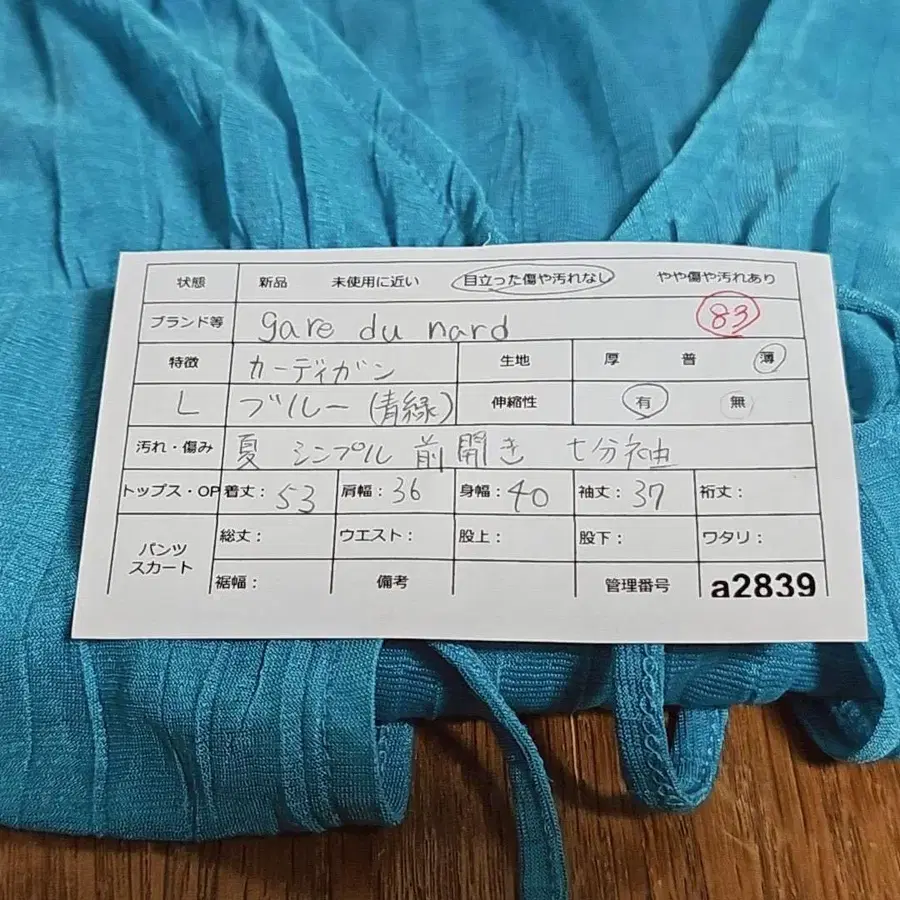 状態 新品 未使用に近い 目立った傷や汚れなし やや傷や汚れあり
ブランド等 gare du nard 83
特徴 カーディガン 生地 厚 普 薄
L ブルー(青緑) 伸縮性 有 無
汚れ・傷み 夏 シンプル 前開き 七分袖
トップス・OP 着丈: 53 肩幅: 36 身幅: 40 袖丈: 37 裄丈:
パンツ スカート 総丈: ウエスト: 股上: 股下: ワタリ:
裾幅: 備考 管理番号 a2839